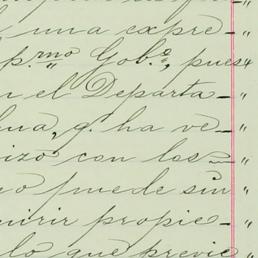 , una expre- "
p.r mo Gob.o, pues "
n el Departa- "
ua, q.e ha ve- "
izo con los "
o puede sin "
uirir propie- "
lo que previe "